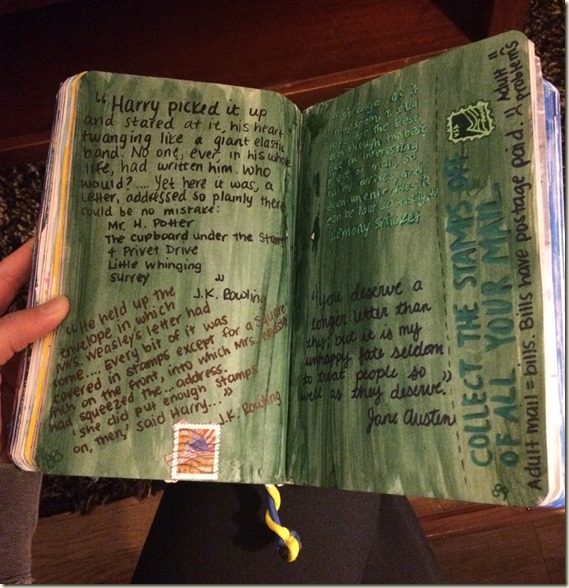 "Harry picked it up
and stared at it, his heart
twanging like a giant elastic
band. No one, ever, in his whole
life, had written him. Who
would?.... Yet here it was, a
letter, addressed so plainly there
could be no mistake:
Mr. H. Potter
The cupboard under the
4 Privet Drive
Little Whinging
Surrey "
J.K. Rowling
"He held up the
envelope in which
Mrs. Weasley's letter had
come.... Every bit of it was
covered in stamps except for a square
inch on the front, into which Mrs. Weasley
had squeezed the... address.
'She did put enough stamps
on, then,' said Harry..."
J.K. Rowling
strange as it
may I still
for the best
though the best
an interesting
piece of mail, so
arrives and
even when it does it
can be lost so easily."
Lemony Snicket
"You deserve a
longer letter than
this; but it is my
unhappy fate seldom
to treat people so
well as they deserve."
Jane Austen
COLLECT THE STAMPS OFF
OF ALL YOUR MAIL.
Adult mail = bills. Bills have postage paid. :/ Adult
problems